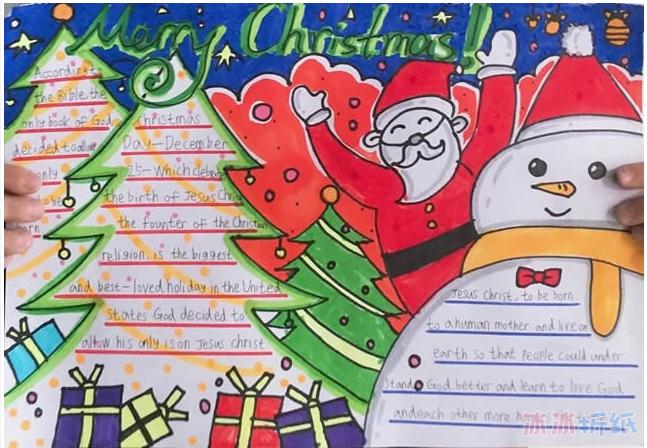 Merry Christmas!
According t
the Bible, the
only book of God
decided to allow
only
to be
rn
Christmas
Day-December
25-Which
the birth of Jesus Chri
the founter of the Christian
religion, is the biggest
and best-loved holiday in the United
States God decided to
allow his only is on Jesus christ
Jesus christ, to be born
to a human mother and live on
earth so that people could under
stand God better and learn to love God
and each other more
冰冰折纸